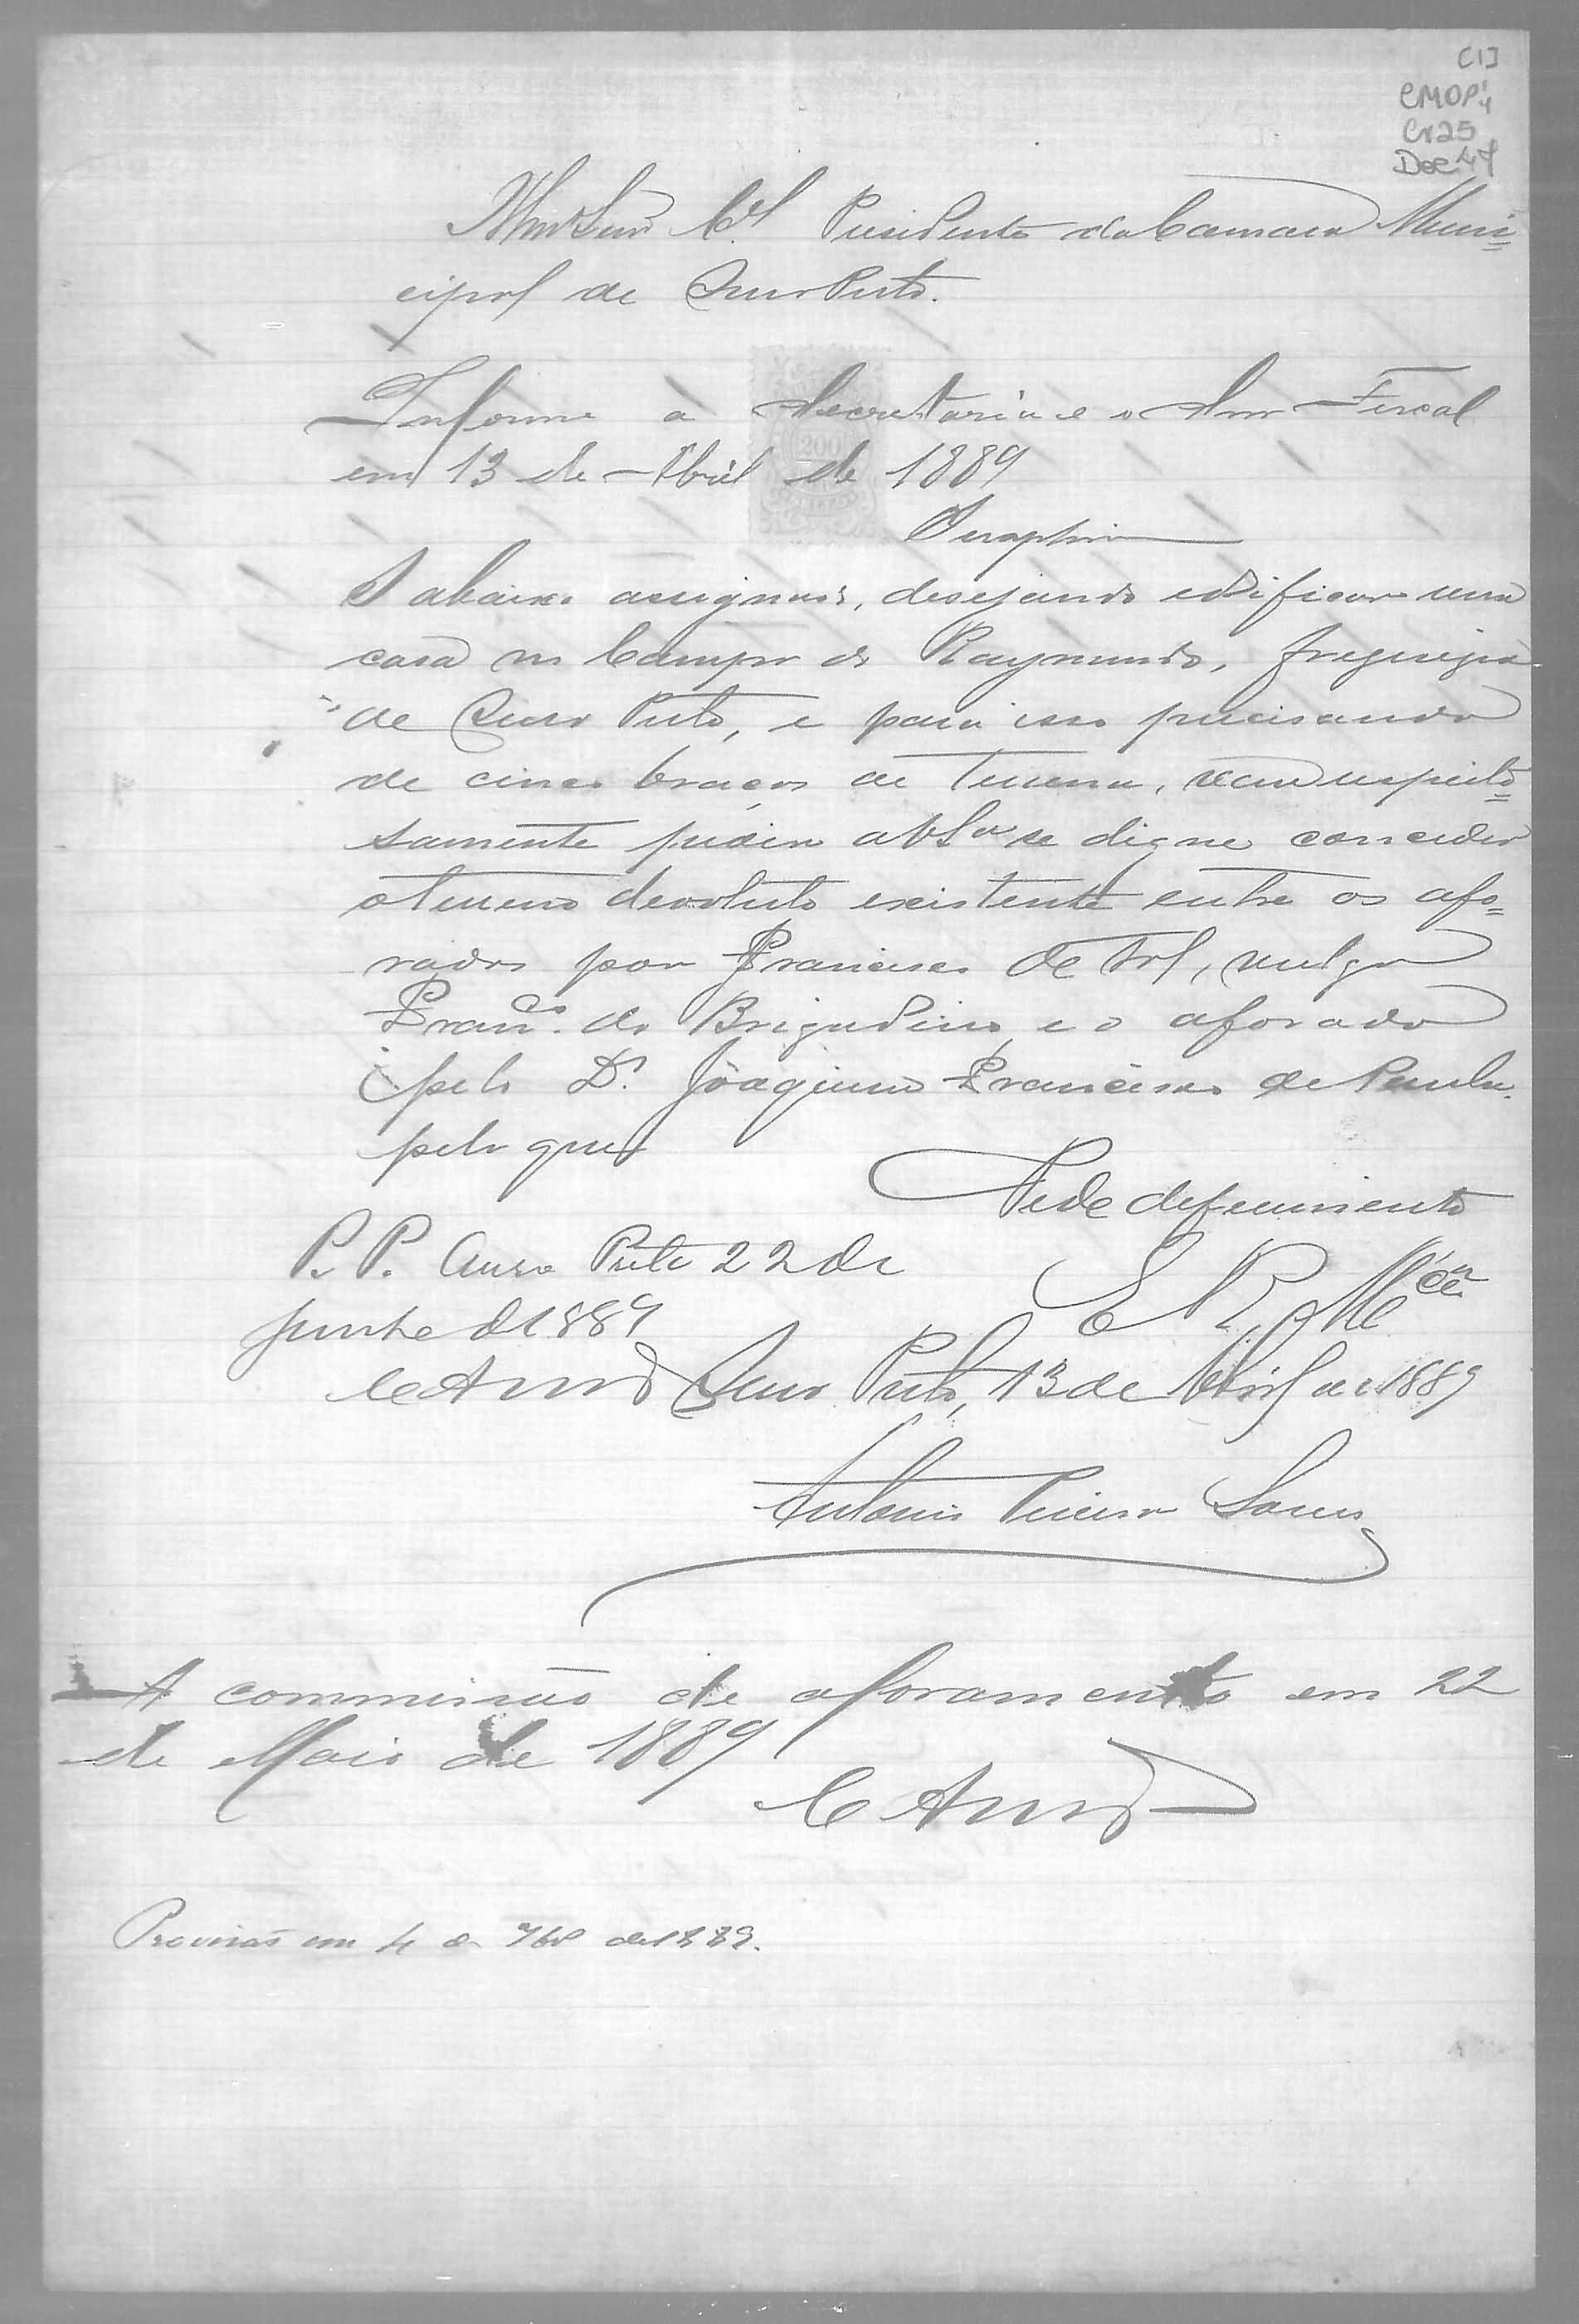 [1]
CMOP
Cx25
Doc 47
Illmo Snr Cel Presidente da Camara Muni=
cipal de Ouro Preto.
Informe a Secretaria e o Snr Fiscal
em 13 de Abril de 1889
Seraphim
200
O abaixo assignado, desejando edificar uma
casa no Campo do Raymundo, freguezia
de Ouro Preto, e para isso precisando
de cinco braças de terreno, vem respeito=
samente pedir a VSa se digne conceder
o terreno devoluto existente entre os afo=
rados por Francisco de tal, vulgo
Franco do Brigadeiro, e o aforado
pelo Dr Joaquim Francisco de Paula.
pelo que
Pede deferimento
P. P. Ouro Preto 22 de
Junho de 1889
E R Mcê
Ouro Preto, 13 de Abril de 1889
Antonio Pereira Soares
A commissão de aforamento em 22
de Maio de 1889
Provisão em 4 de 7bro de 1889.